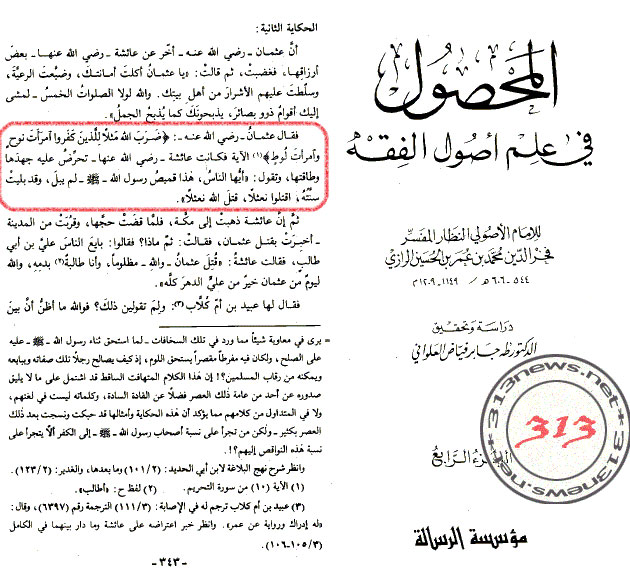 المحصول
في علم أصول الفقه
للإمام الأصولي النظار المفسر
فخر الدين محمد بن عمر بن الحسين الرازي
٥٤٤ - ٦٠٦ هـ / ١١٤٩ - ١٢٠٩ م
دراسة وتحقيق
الدكتور طه جابر فياض العلواني
الجزء الرابع
مؤسسة الرسالة
313news.net*
313
313news.net*
الحكاية الثانية:
أنَّ عثمان ـ رضي الله عنه ـ أخّر عن عائشة ـ رضي الله عنها ـ بعض
أرزاقها، فغضبت، ثم قالت: «يا عثمان أكلت أمانتك، وضيَّعت الرعيَّة،
وسلَّطت عليهم الأشرار من أهل بيتك. والله لولا الصلوات الخمس ـ لمشى
إليك أقوام ذوو بصائر، يذبحونك كما يُذبح الجمل».
فقال عثمان ـ رضي الله عنه ـ: ﴿ضَرَبَ الله مَثَلًا لِلَّذِينَ كَفَرُوا امْرَأَتَ نوحٍ
وامرأت لُوطٍ﴾(١) الآية فكانت عائشة ـ رضي الله عنها ـ تحرّض عليه جهدها
وطاقتها، وتقول: «أيُّها الناس، هذا قميص رسول الله ـ ﷺ ـ لم يبلَ، وقد بليت
سنَّتُه، اقتلوا نعثلًا، قتل الله نعثلًا».
ثم إن عائشة ذهبت إلى مكّة، فلمَّا قضت حجّها، وقربت من المدينة
ـ أخبرَت بقتل عثمان، فقالت: ثم ماذا؟ فقالوا: بايع الناس عليّ بن أبي
طالب، فقالت عائشة: «قُتل عثمان ـ والله ـ مظلوماً، وأنا طالبة(٢) بدمه، والله
ليومٌ من عثمان خيرٌ من عليٍّ الدهرَ كلَّه».
فقال لها عبيد بن أم كُلَّاب(٣): ولِمَ تقولين ذلك؟ فوالله ما أظنُّ أنَّ بين
= يرى في معاوية شيئاً مما ورد في تلك السخافات ـ لما استحق ثناء رسول الله ـ ﷺ ـ عليه
على الصلح، ولكان فيه مفرطاً مقصراً يستحق اللوم، إذ كيف يصالح رجلًا تلك صفاته ويبايعه
ويمكنه من رقاب المسلمين؟! إن هذا الكلام المتهافت الساقط قد اشتمل على ما لا يليق
صدوره عن أحد من عامة ذلك العصر فضلًا عن القادة السادة، وكلماته ليست في لغتهم،
ولا في المتداول من كلامهم مما يؤكد أن هذه الحكاية وأمثالها قد حيكت ونسجت بعد ذلك
العصر بكثير ـ ولكن من تجرأ على نسبة أصحاب رسول الله ـ ﷺ ـ إلى الكفر ألا يتجرأ على
نسبة هذه النواقص إليهم؟!.
وانظر شرح نهج البلاغة لابن أبي الحديد: (١٠١/٢) وما بعدها، والغدير: (١٢٣/٢).
(١) الآية (١٠) من سورة التحريم.
(٢) لفظ ح: «أطالب».
(٣) عبيد بن أم كلاب ترجم له في الإصابة: (١١١/٣) الترجمة رقم (٦٣٩٧)، وقال:
«له إدراك ورواية عن عمر». وانظر خبر اعتراضه على عائشة وما دار بينهما في الكامل
(١٠٥/٣-١٠٦).
-٣٤٣-